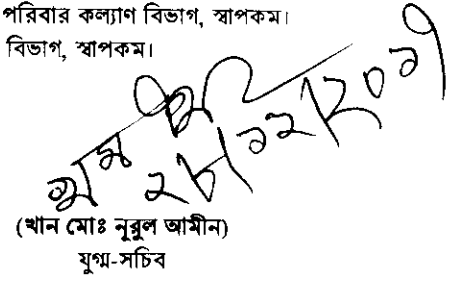 পরিবার কল্যাণ বিভাগ, স্বাপকম।
বিভাগ, স্বাপকম।
(খান মোঃ নূরুল আমীন)
যুগ্ম-সচিব